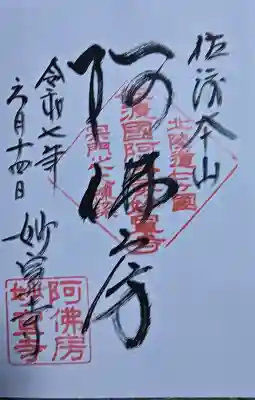 佐渡本山
阿佛房
妙宣寺
令和七年
六月十四日
北陸道七ヶ國
佐渡國阿佛房妙宣寺
阿佛房
妙宣寺